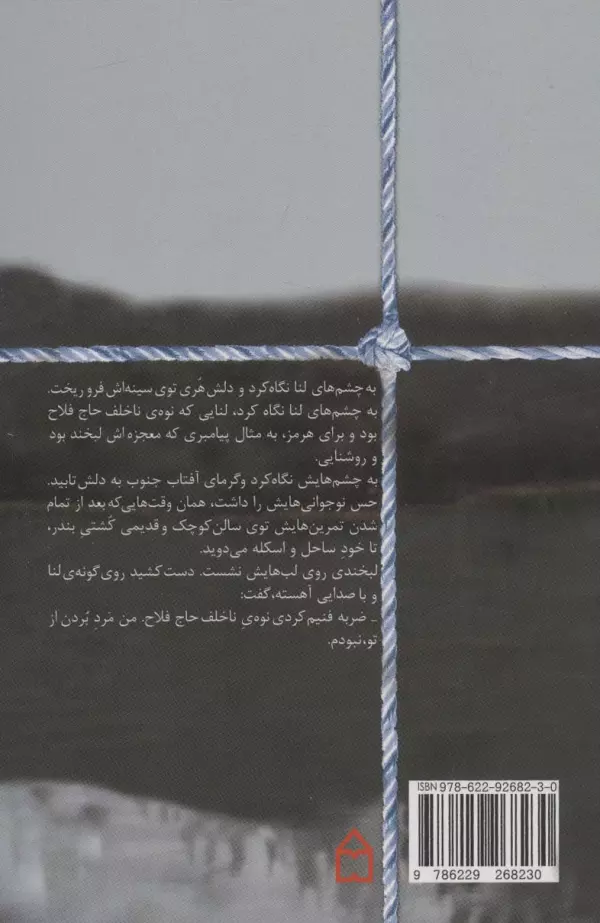 به چشم‌های لنا نگاه کرد و دلش هُری توی سینه‌اش فرو ریخت.
به چشم‌های لنا نگاه کرد، لنایی که نوه‌ی ناخلف حاج فلاح
بود و برای هرمز، به مثال پیامبری که معجزه‌اش لبخند بود
و روشنایی.
به چشم‌هایش نگاه کرد و گرمای آفتاب جنوب به دلش تابید.
حس نوجوانی‌هایش را داشت، همان وقت‌هایی که بعد از تمام
شدن تمرین‌هایش توی سالن کوچک و قدیمی کُشتیِ بندر،
تا خودِ ساحل و اسکله می‌دوید.
لبخندی روی لب‌هایش نشست. دست کشید روی گونه‌ی لنا
و با صدایی آهسته، گفت:
ـ ضربه فنیم کردی نوه‌یِ ناخلف حاج فلاح. من مَردِ بُردن از
تو، نبودم.
ISBN 978-622-92682-3-0
9 786229 268230